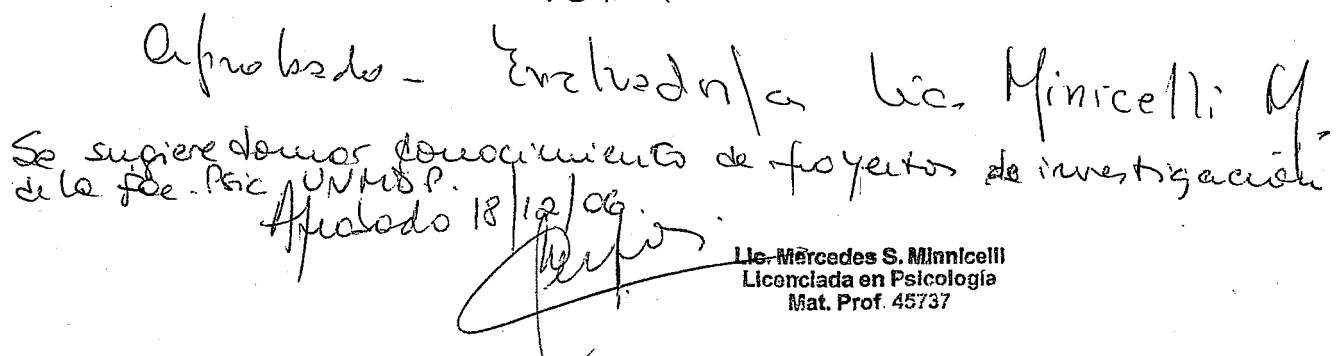 Aprobado - Evaluador/a Lic. Minicelli M.
Se sugiere tomar conocimiento de proyectos de investigación
de la fac. Psic UNMDP.
Aprobado 18/12/06
Lic. Mercedes S. Minnicelli
Licenciada en Psicología
Mat. Prof. 45737